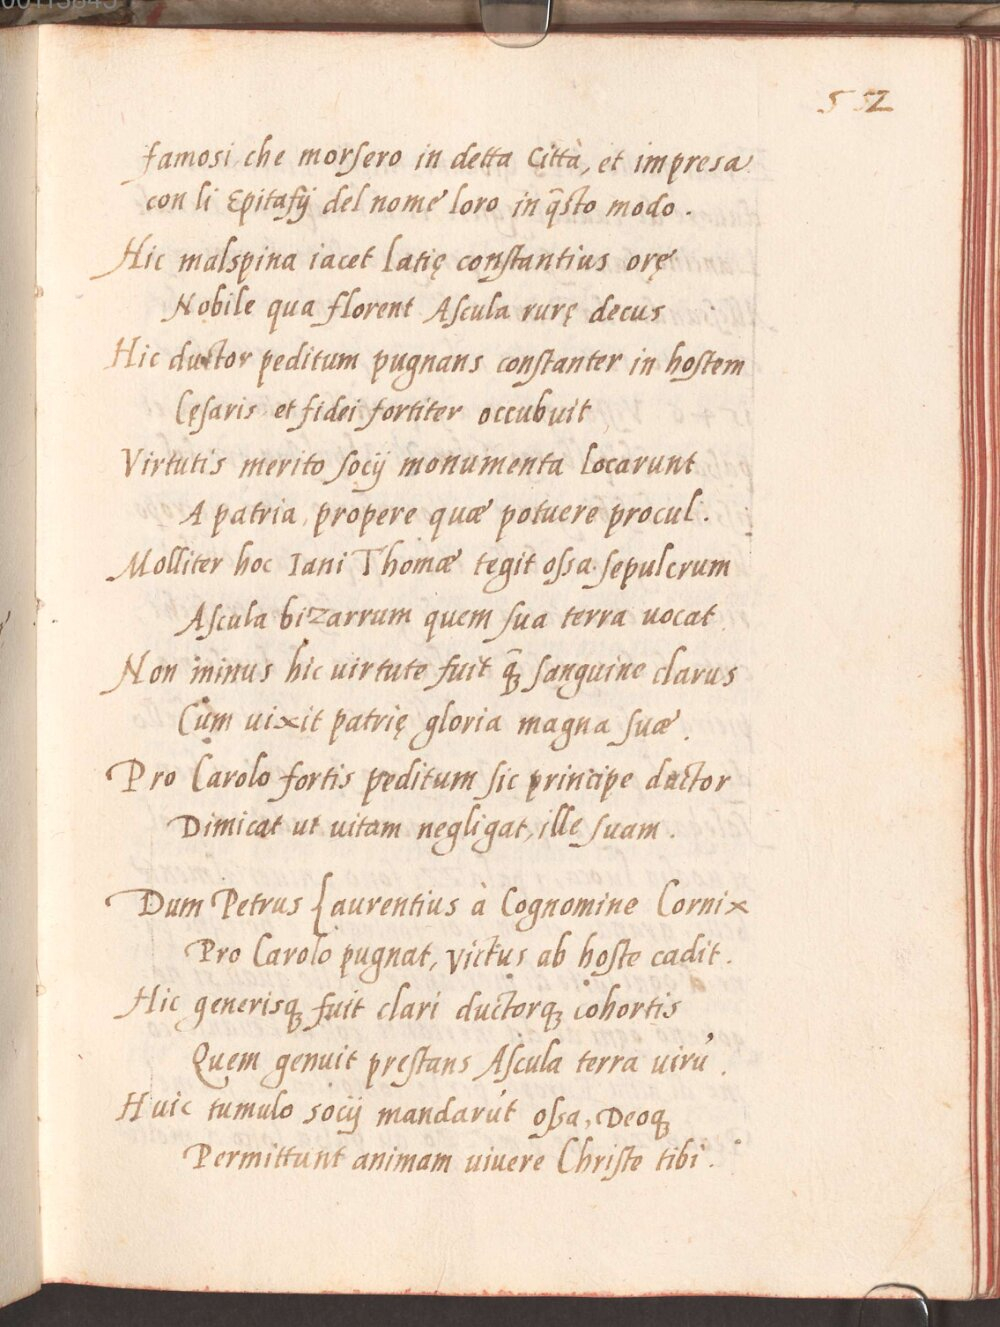 552
famosi che morsero in detta Città, et impresa
con li Epitafij del nome loro in q̃sto modo.
Hic malspina iacet latię constantius orę
Nobile qua florent Ascula rurę decus
Hic ductor peditum pugnans constanter in hostem
Cęsaris et fidei fortiter occubuit
Virtutis merito socij monumenta locarunt
A patria propere quæ potuere procul.
Molliter hoc Iani Thomæ tegit ossa sepulcrum
Ascula bizarrum quem sua terra uocat
Non minus hic uirtute fuit q̃ꝫ sanguine clarus
Cum uixit patrię gloria magna suæ.
Pro Carolo fortis peditum sic principe ductor
Dimicat ut uitam negligat, ille suam.
Dum Petrus Laurentius à Cognomine Cornix
Pro Carolo pugnat, victus ab hoste cadit.
Hic generisqꝫ fuit clari ductorqꝫ cohortis
Quem genuit prestans Ascula terra uirũ.
Huic tumulo socij mandarũt ossa, Deoqꝫ
Permittunt animam uiuere Christe tibi.